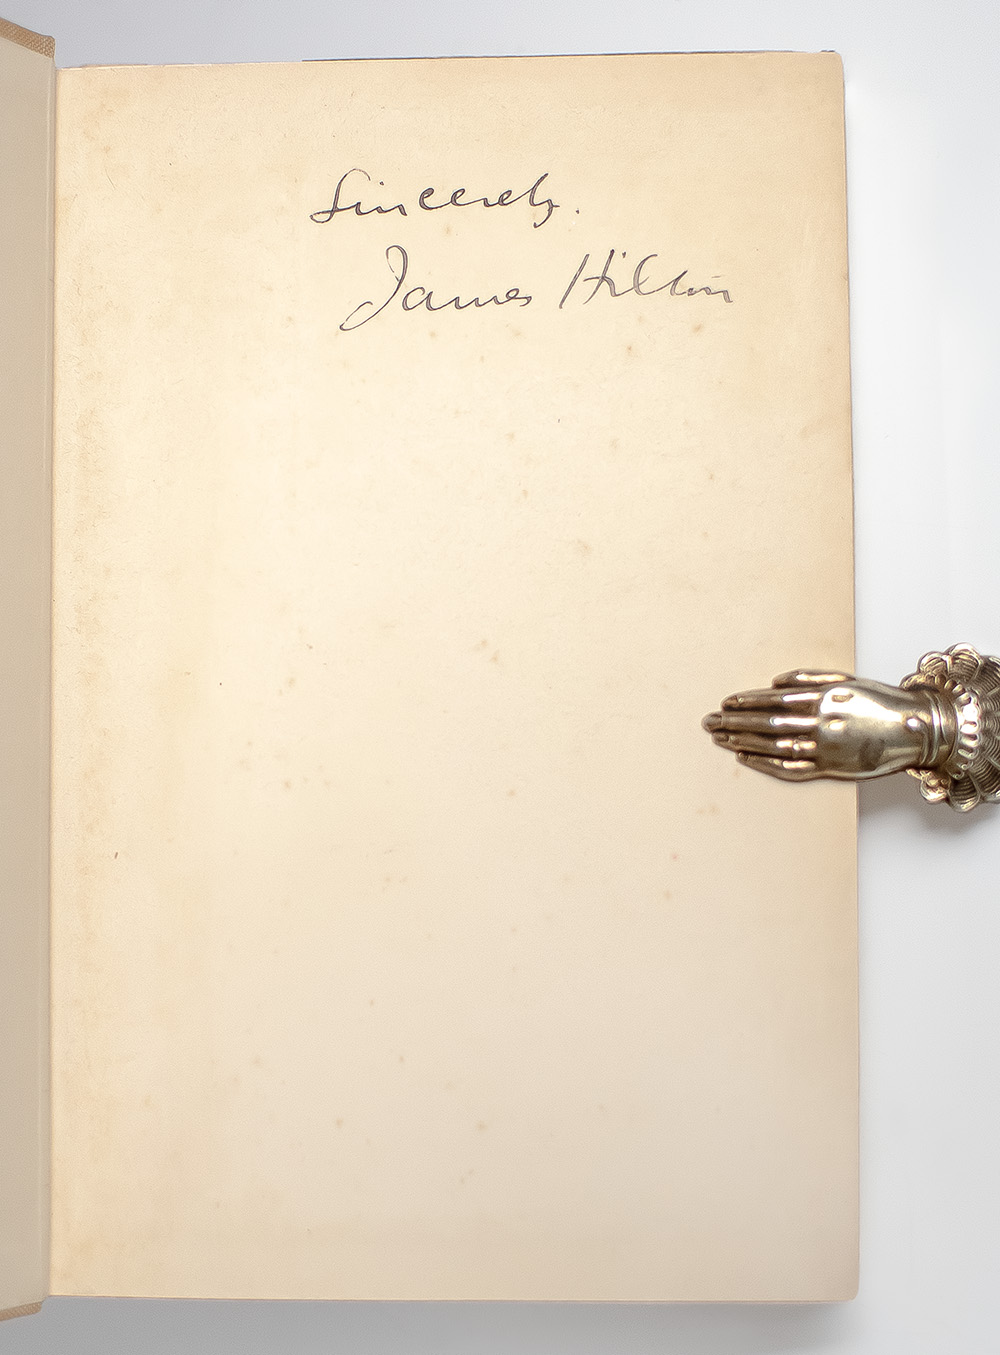 Sincerely.
James Hilton